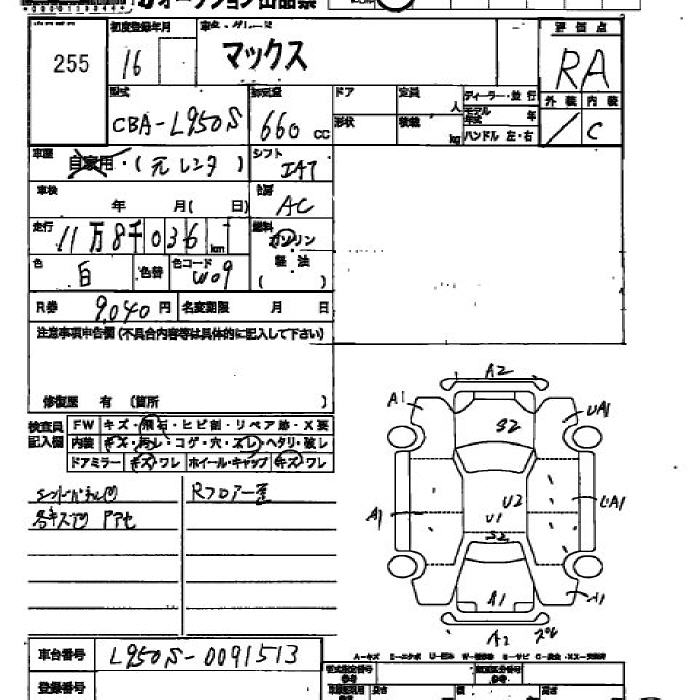 255
初度登録年月
16
車名・グレード
マックス
評価点
RA
外装 内装
/ C
型式
CBA-L950S
排気量
660 cc
ドア
定員
人
形状
積載
kg
ディーラー・並行
モデル年式 年
ハンドル 左・右
車歴
自家用・(元レンタ)
シフト
IAT
車検
年 月(日)
冷房
AC
走行
11万8千036 km
燃料
ガソリン
軽油
( )
色
白
色替
色コード
W09
R券 9,040 円
名変期限 月 日
注意事項申告欄(不具合内容等は具体的に記入して下さい)
修復歴 有 (箇所 )
検査員記入欄
FW キズ・飛石・ヒビ割・リペア跡・X要
内装 キズ・汚レ・コゲ・穴・スレ・ヘタリ・破レ
ドアミラー キズ・ワレ ホイール・キャップ キズ・ワレ
Rフロアー歪
各キズ凹
A2
A1
UA1
S2
U2
U1
S2
A1
UA1
A1
A1
A2
車台番号 L950S-0091513
登録番号